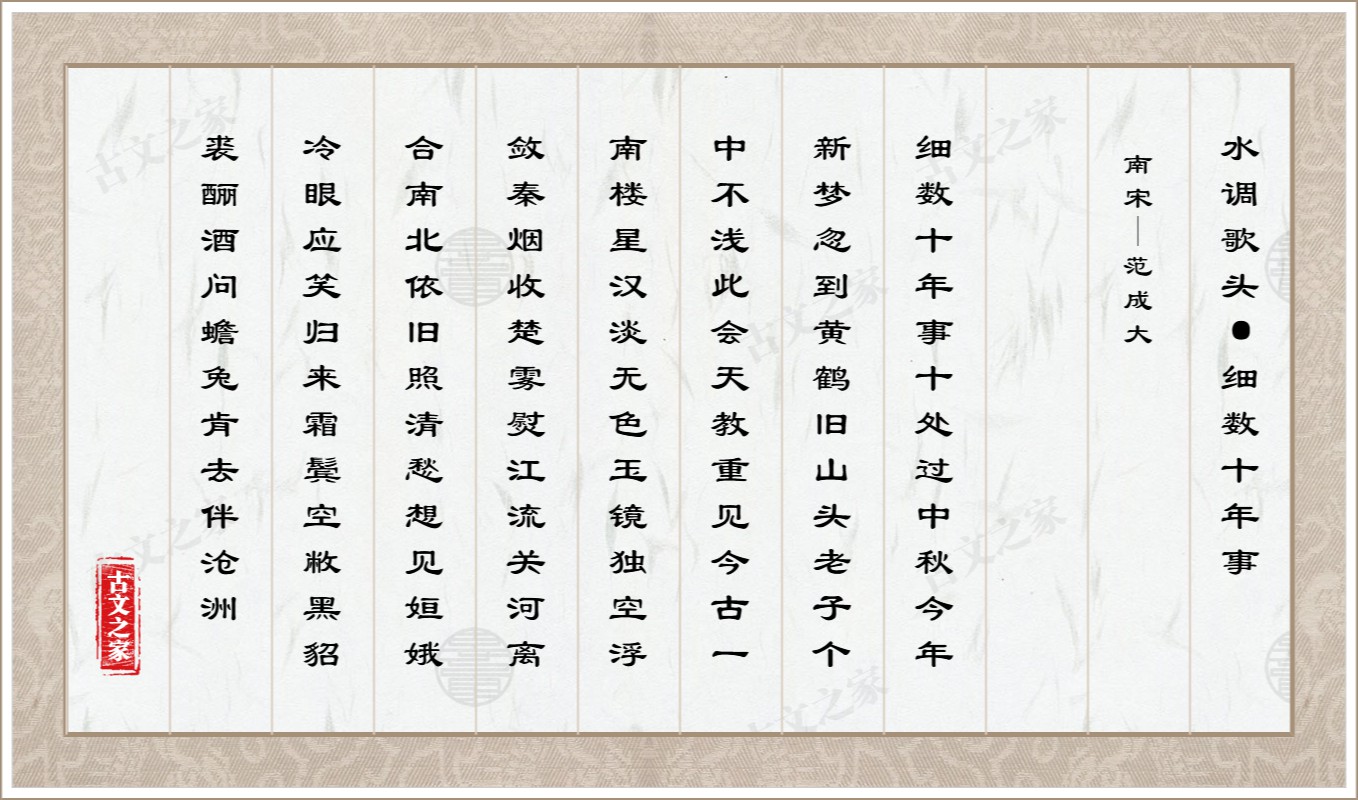 水调歌头●细数十年事
南宋—范成大
细数十年事十处过中秋今年
新梦忽到黄鹤旧山头老子个
中不浅此会天教重见今古一
南楼星汉淡无色玉镜独空浮
敛秦烟收楚雾熨江流关河离
合南北依旧照清愁想见姮娥
冷眼应笑归来霜鬓空敝黑貂
裘酾酒问蟾兔肯去伴沧洲
古文之家
古文之家
古文之家
古文之家
古文之家
古文之家
古文之家